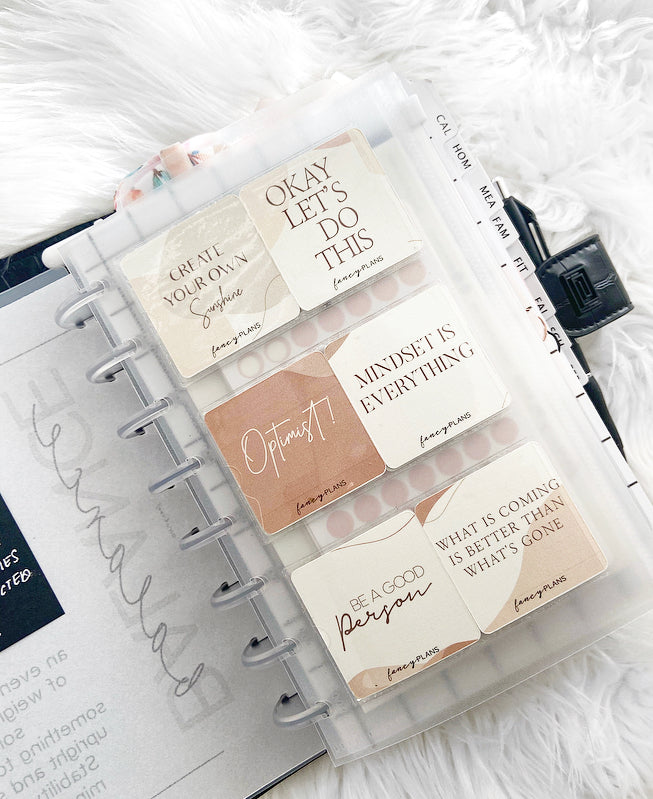 CREATE
YOUR OWN
Sunshine
fancyPLANS
OKAY
LET'S
DO
THIS
fancyPLANS
Optimist!
fancyPLANS
MINDSET IS
EVERYTHING
fancyPLANS
BE A GOOD
person
fancyPLANS
WHAT IS COMING
IS BETTER THAN
WHAT'S GONE
fancyPLANS
CAL
HOM
MEA
FAM
FIT
BALANCE
balance
an even
of weig
something to
upright and s
Stability